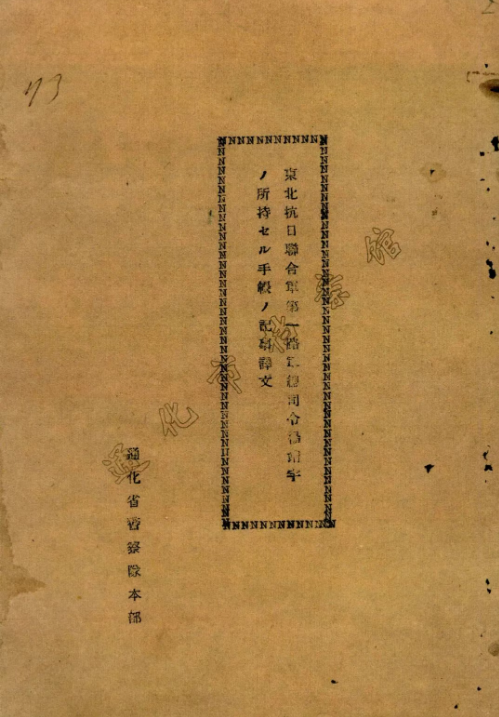 東北抗日聯合軍第一路軍總司令楊靖宇
ノ所持セル手帳ノ記事譯文
通化省警察隊本部
通化市档案馆